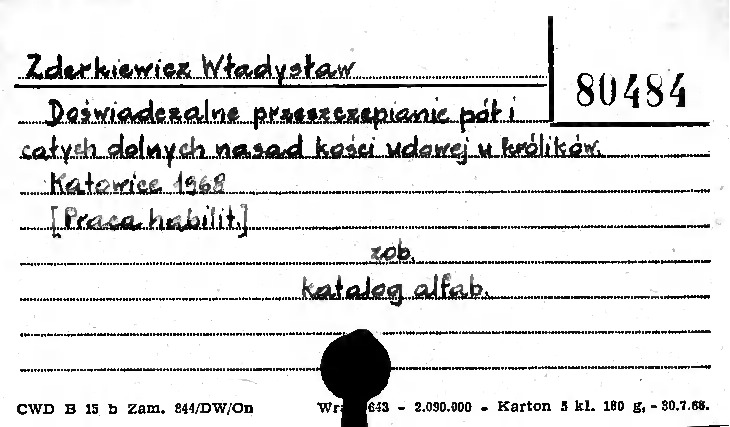 Zderkiewicz Władysław
80484
Doświadczalne przeszczepianie pół i
całych dolnych nasad kości udowej u królików.
Katowice 1968
[Praca habilit.]
zob.
katalog alfab.
CWD B 15 b Zam. 844/DW/On 643 - 2.090.000 - Karton 5 kl. 180 g, - 30.7.68.